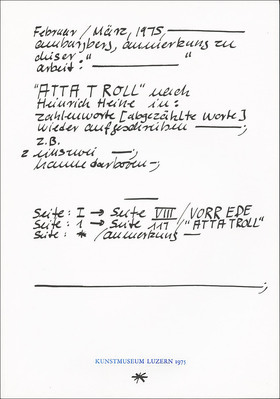 Februar / März, 1975 —
am burgberg, anmerkung zu
dieser „ — "
arbeit: —
"ATTA TROLL" nach
Heinrich Heine in:
zahlenworte [abgezählte Worte]
wieder aufgeschrieben —;
z.B.
2 einszwei —;
hanne darboven —;
Seite: I → Seite VIII / VORREDE
Seite: 1 → Seite 111 / "ATTA TROLL"
Seite: * / anmerkung —
KUNSTMUSEUM LUZERN 1975
*